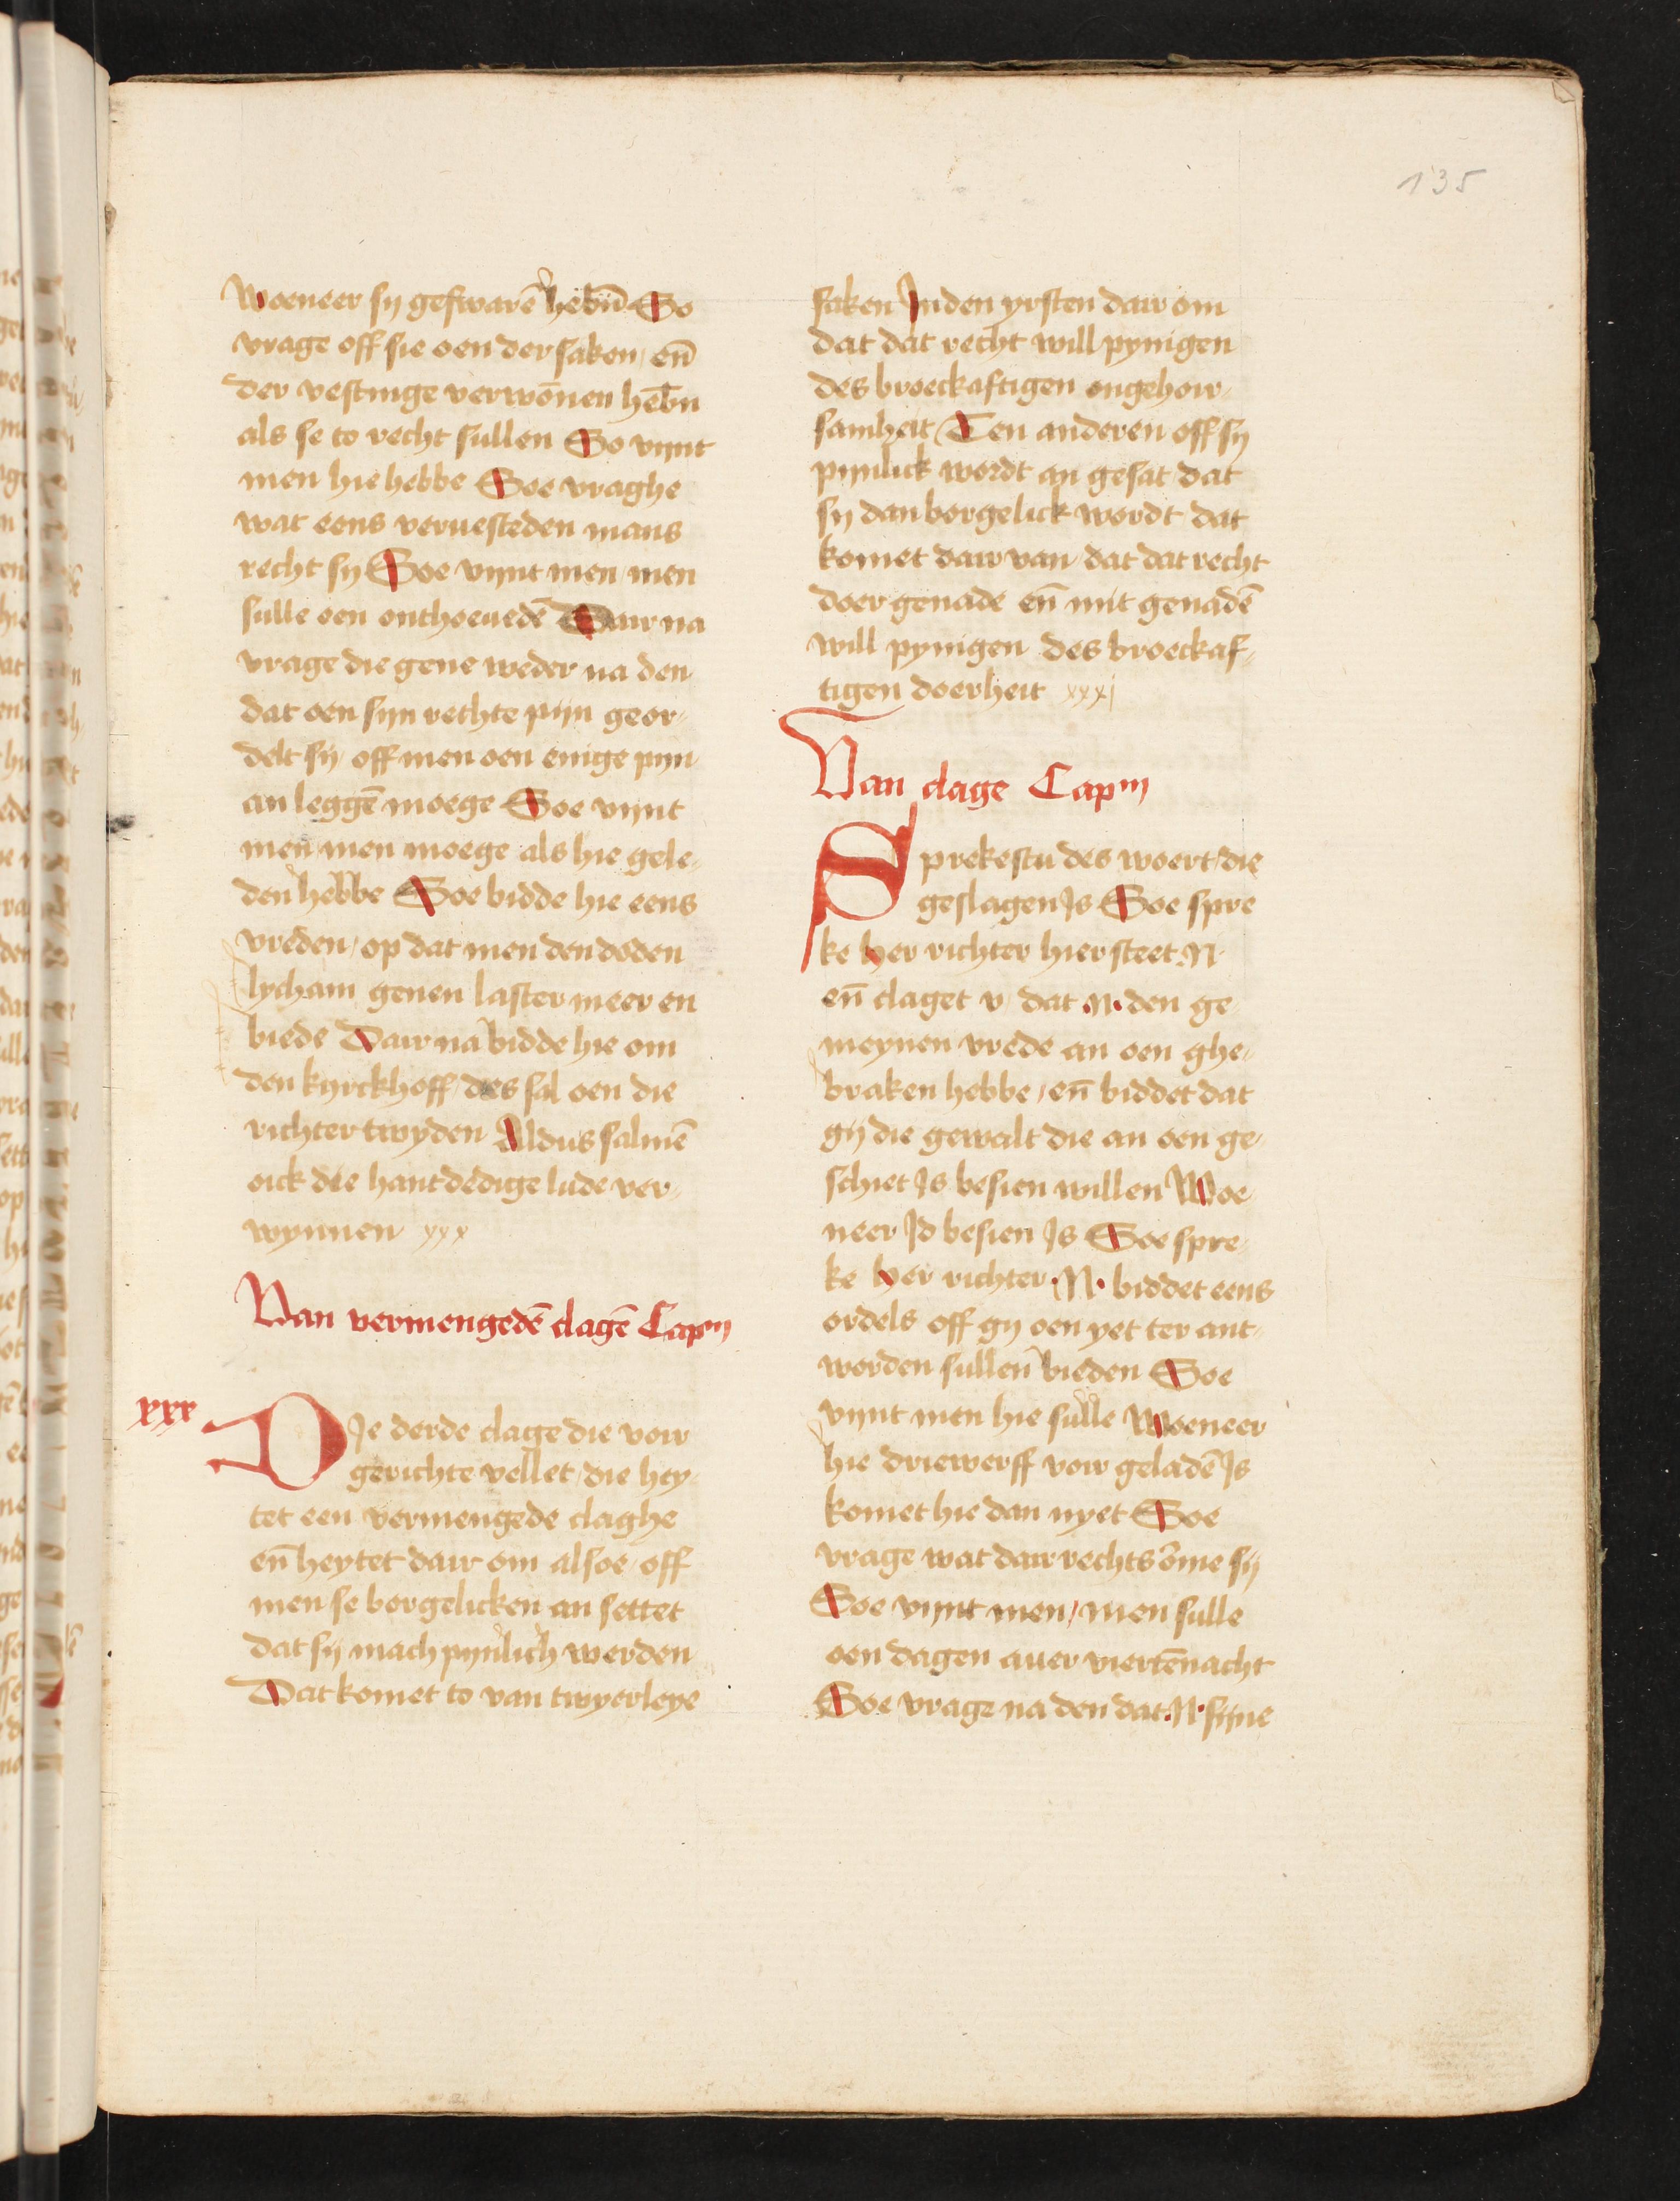 135
Woeneer sij geswarē hebn̄ So
vrage off sie oen der saken / en̄
der vestinge verwōnen hebn̄
als se to recht sullen So vijnt
men hie hebbe Soe vraghe
wat eens veruesteden mans
recht sij Soe vijnt men / men
sulle oen onthoeuedē Dair na
vrage die gene weder na den
dat oen sijn rechte pijn geor-
delt sij / off men oen enige pijn
an leggē moege Soe vijnt
men men moege als hie gele-
den hebbe Soe bidde hie eens
vreden / op dat men den doden
lycham genen laster meer en
biede Dair na bidde hie om
den kyrckhoff / des sal oen die
richter twyden Aldus salmē
oick die hantdedige lude ver-
wynnen xxx
Van vermengedē clagē Capm
xxx
DIe derde clage die voir
gerichte vellet / die hey-
tet een vermengede claghe
en̄ heytet dair om alsoe / off
men se borgelicken an settet
dat sij mach pijnlich werden
Dat komet to van twyerleye
saken Inden yrsten dair om
dat dat recht will pynigen
des broeckaftigen ongehoir-
samheit Ten anderen off sij
pijnlick wordt an gesat / dat
sij dan borgelick wordt / dat
komet dair van / dat dat recht
doer genade en̄ mit genadē
will pynigen des broeckaf-
tigen doerheit xxxj
Van clage Capm
Sprekestu des woert / die
geslagen Is Soe spre
ke her richter hier steet N
en̄ claget v / dat .N. den ge
meynen vrede an oen ghe-
braken hebbe / en̄ biddet dat
gij die gewalt die an oen ge-
schiet Is besien willen Woe
neer Id besien Is Soe spre-
ke her richter .N. biddet eens
ordels off gij oen yet ter ant-
worden sullen bieden Soe
vijnt men hie sulle Woeneer
hie driewerff voir geladē Is
komet hie dan nyet Soe
vrage wat dair rechts ōme sij
Soe vijnt men / men sulle
oen dagen auer viertēnacht
Soe vrage na den dat .N. sijne